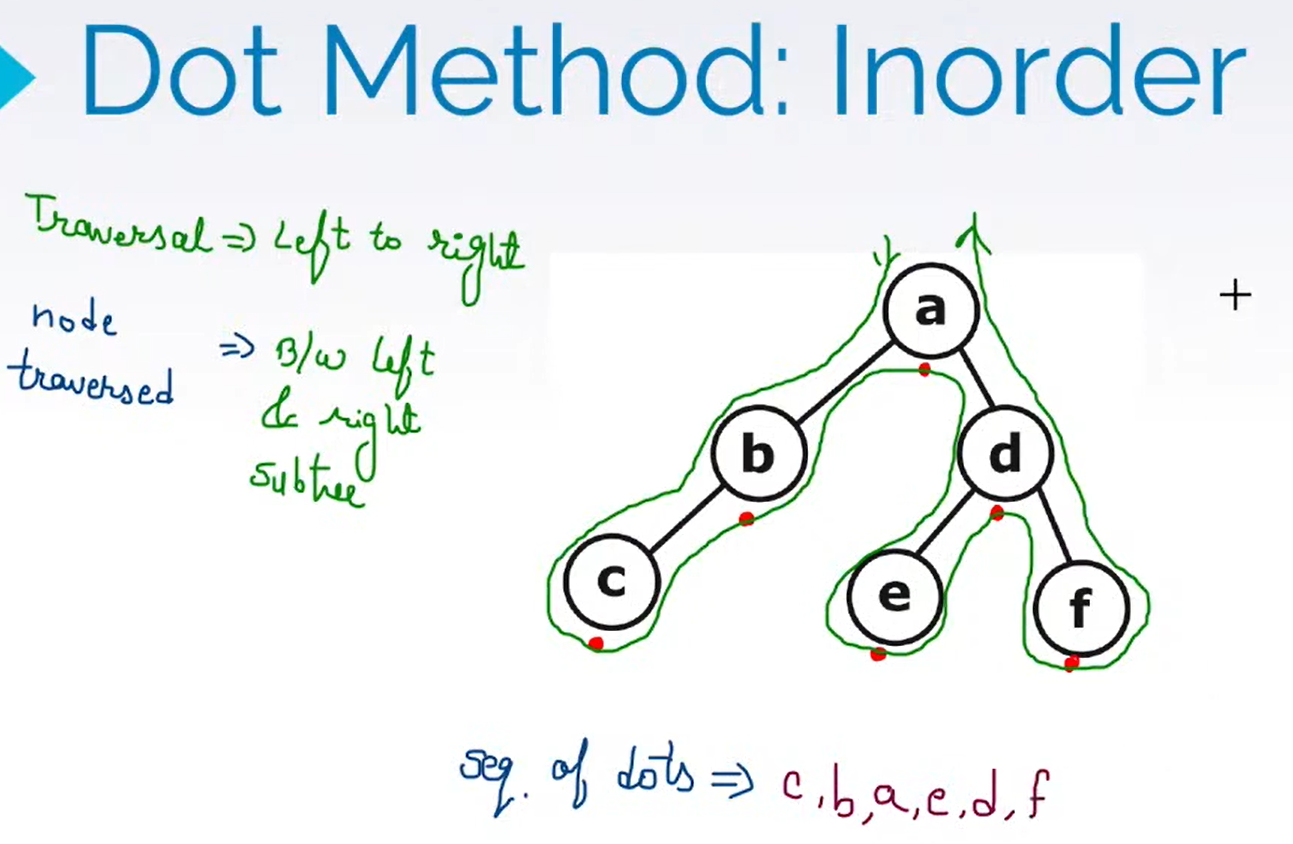 Dot Method: Inorder
Traversal => Left to right
node
traversed
=> B/w left
& right
subtree
a
b
d
c
e
f
seq. of dots => c,b,a,e,d,f